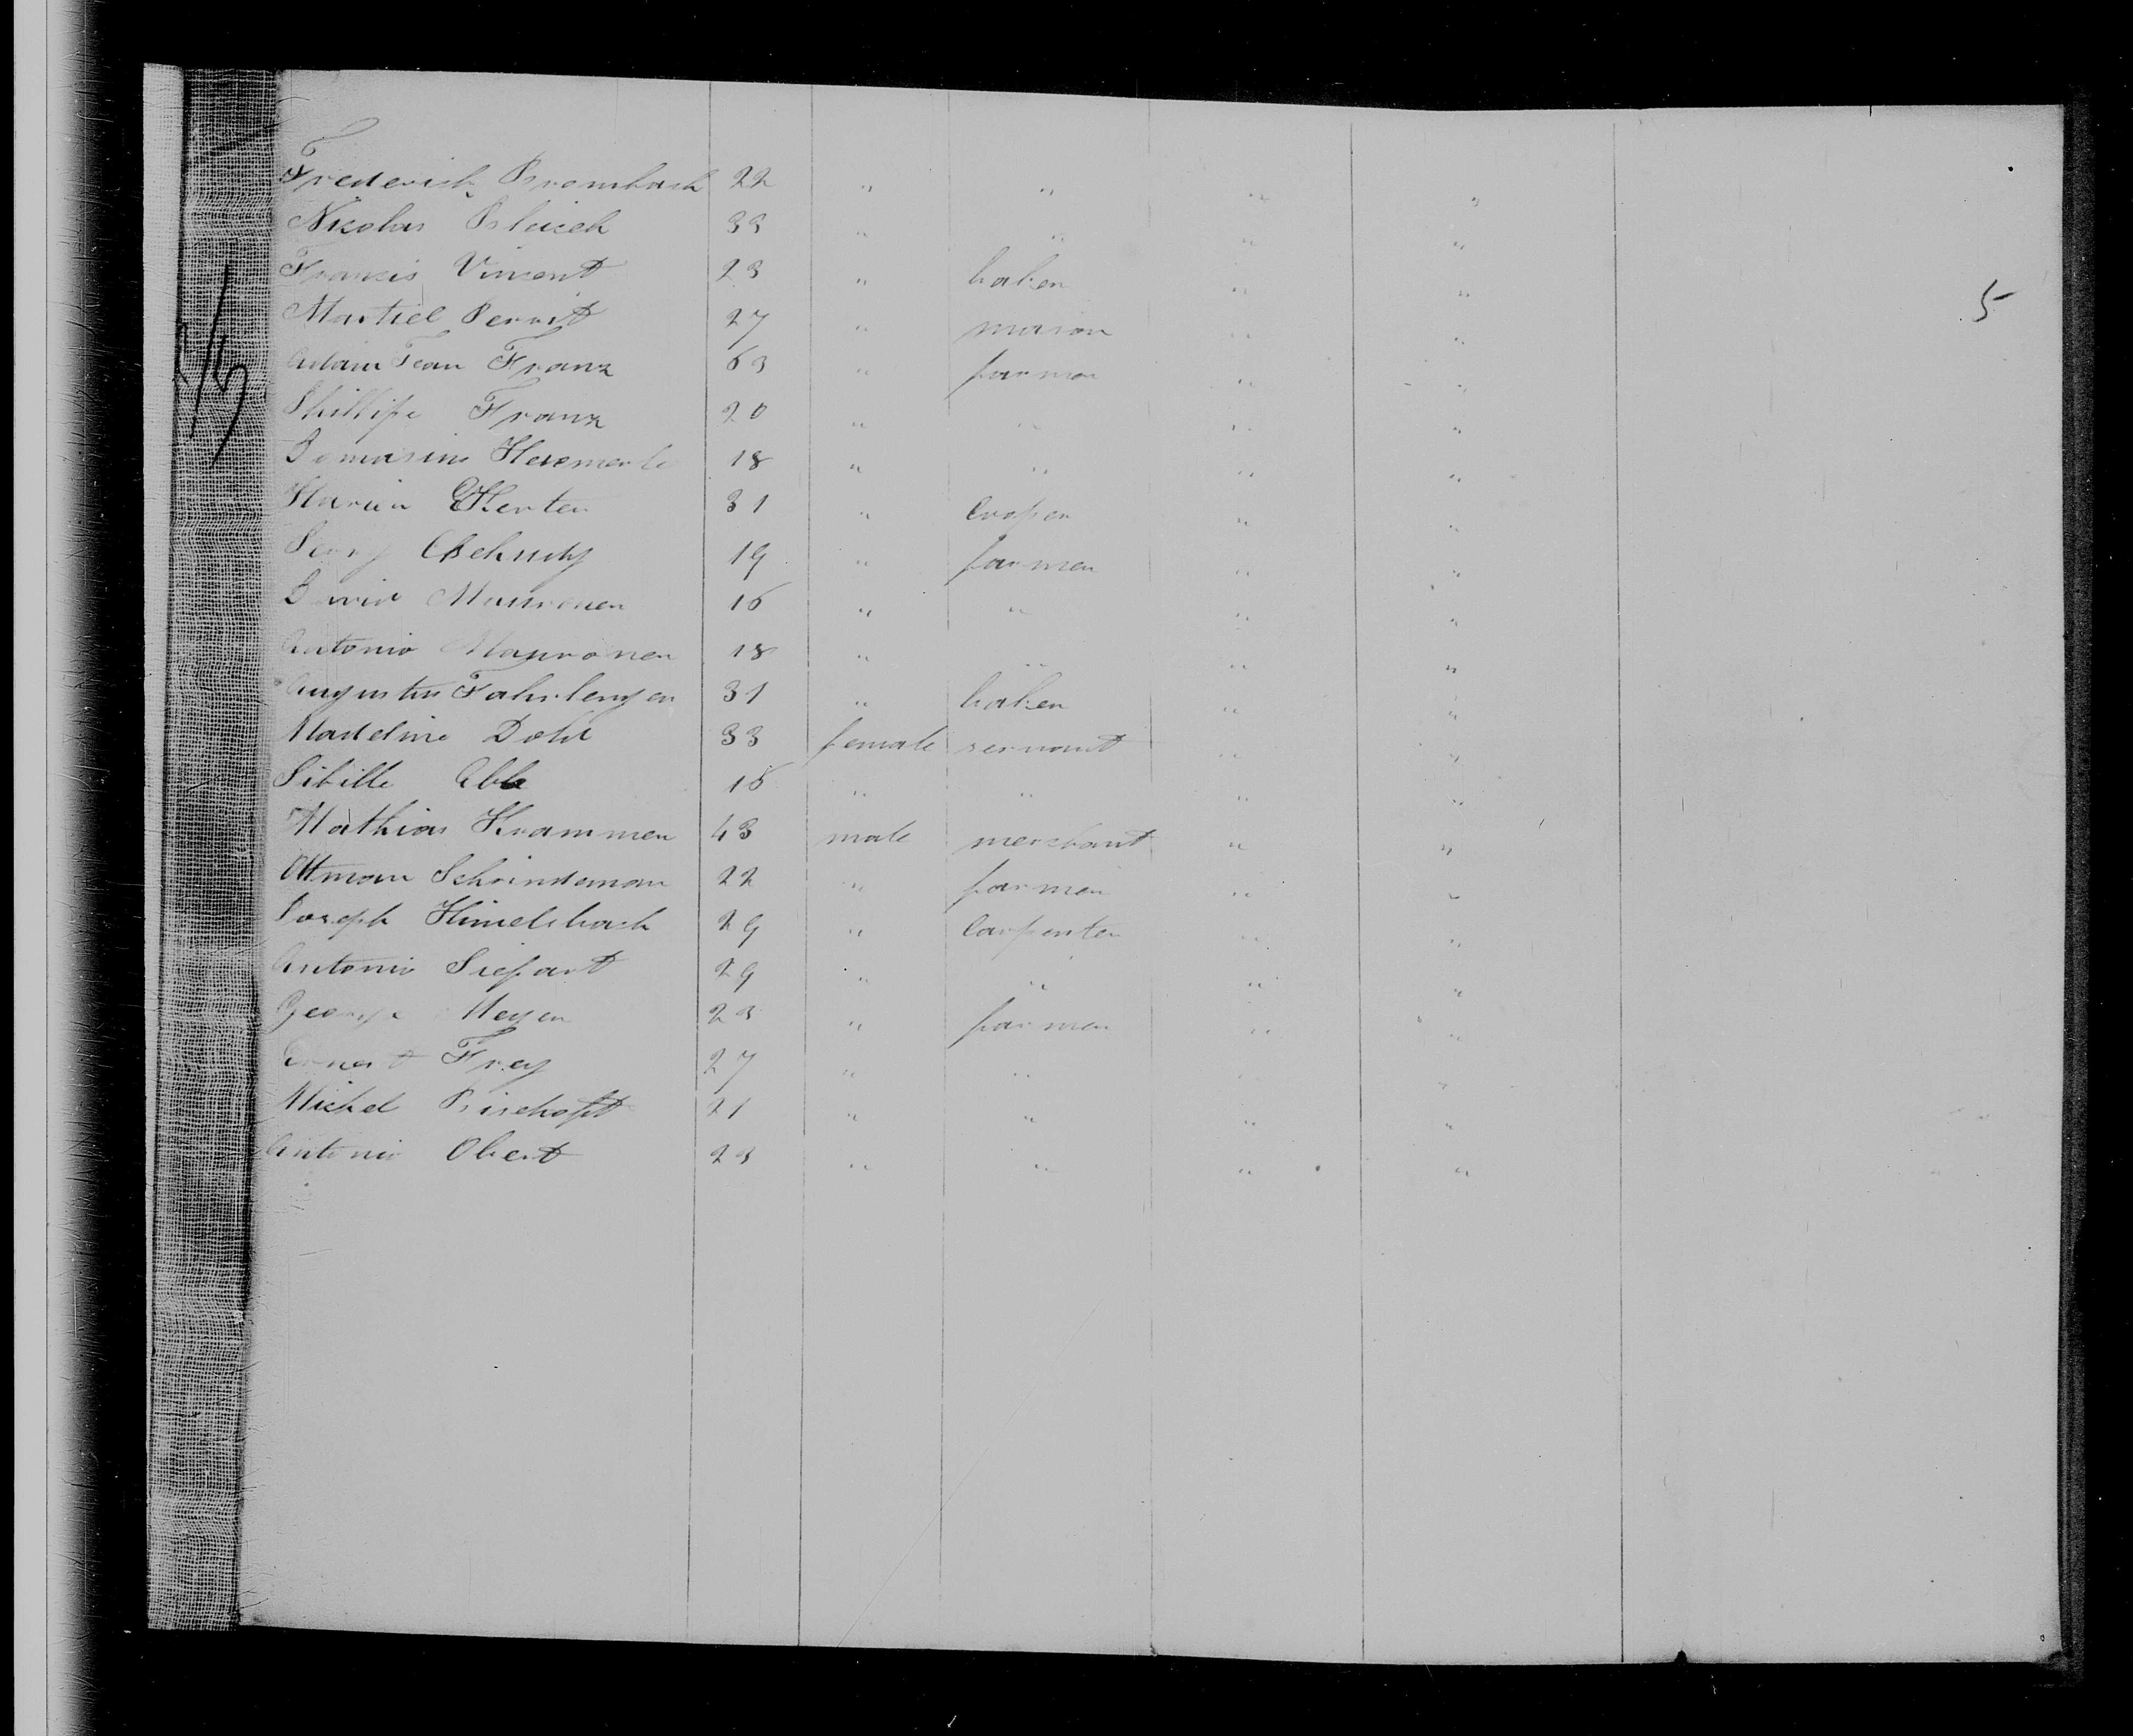 Frederich Brombach 22 " " " "
Nicolas Blaick 33 " " " "
Francis Vincent 23 " baker " "
Martiel Perrot 27 " mason " "
Adam Jean Franz 63 " farmer " "
Phillipe Franz 20 " " " "
Domasius 18 " " " "
Herten 31 " Cooper " "
19 " farmer " "
David 16 " " " "
Antonio Mauroner 18 " " " "
Augustus Fahrlenger 31 " baker " "
Madeline Dold 33 female servant " "
Sibille Abb 16 " " " "
Mathias Krammer 43 male merchant " "
Ottman Schoindaman 22 " farmer " "
Joseph Himelsbach 29 " Carpenter " "
Antonio Siefart 29 " " " "
George Meyer 23 " farmer " "
Ernest Frey 27 " " " "
Michel Bischoft 21 " " " "
Antonio Obert 23 " " " "
5